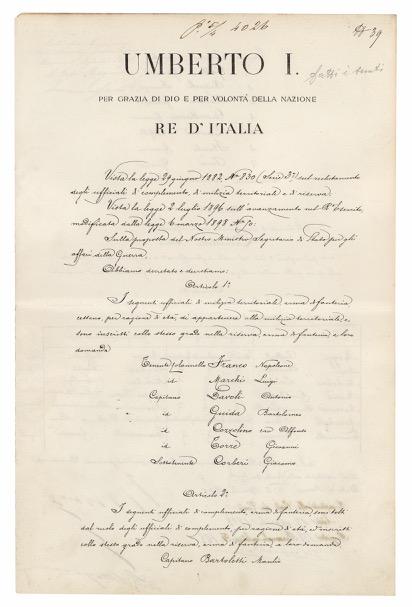 4026
39
UMBERTO I.
fatti i tenti
PER GRAZIA DI DIO E PER VOLONTÁ DELLA NAZIONE
RE D'ITALIA
Vista la legge 29 giugno 1882, Nº 830 (Serie 3ª) sul reclutamento
degli ufficiali di complemento, di milizia territoriale e di riserva.
Vista la legge 2 luglio 1896 sull'avanzamento nel Rº Esercito,
modificata dalla legge 6 marzo 1898 Nº 50:
Sulla proposta del Nostro Ministro, Segretario di Stato per gli
affari della Guerra.
Abbiamo decretato e decretiamo:
Articolo 1º
I seguenti ufficiali di milizia territoriale, arma di fanteria
cessano, per ragione di età, di appartenere alla milizia territoriale, e
sono inscritti collo stesso grado nella riserva, arma di fanteria, a loro
domanda
Tenente Colonnello Franco Napoleone
id Marchi Luigi
Capitano Gavoli Antonio
id Guida Bartolomeo
id Cozzolino Alfonso
id Torre Giovanni
Sottotenente Corberi Giacomo
Articolo 2º
I seguenti ufficiali di complemento, arma di fanteria, sono tolti
dal ruolo degli ufficiali di complemento, per ragione di età, ed inscritti
collo stesso grado nella riserva, arma di fanteria, a loro domanda
Capitano Bartoletti Manlio